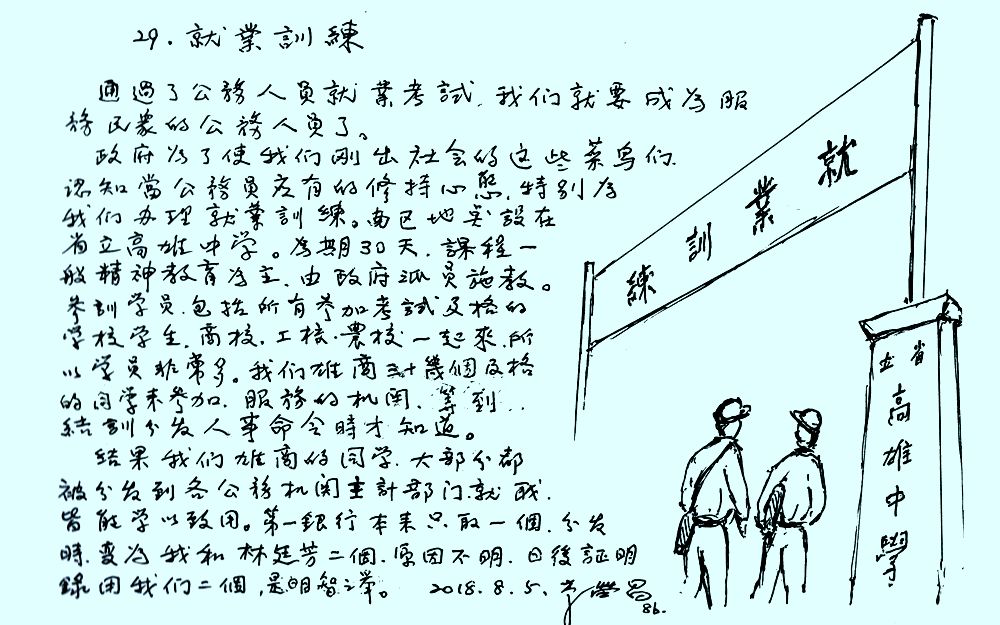 29. 就業訓練
通過了公務人員就業考試, 我们就要成为服
務民衆的公務人員了。
政府为了使我们刚出社会的这些菜鸟们
認知當公務員应有的修持心態, 特别为
我们办理就業訓練。南巴地点設在
省立高雄中学。为期30天, 課程一
般精神教育为主, 由政府派員施教。
参訓学員, 包括所有参加考試及格的
学校学生, 高校、工校、農校一起來, 所
以学員非常多。我们雄商三十幾個及格
的同学来参加, 服務的机関, 等到..
結訓分发人事命令時才知道。
结果我们雄商的同学, 大部分都
被分发到各公務机関主計部门就职,
皆能学以致用。第一銀行本来只取一個, 分发
時, 变为我和林廷芳二個, 原因不明, 日後証明
錄用我们二個, 是明智之举。 2018.8.5. 榮昌
86.
就業訓練
省立
高雄中學